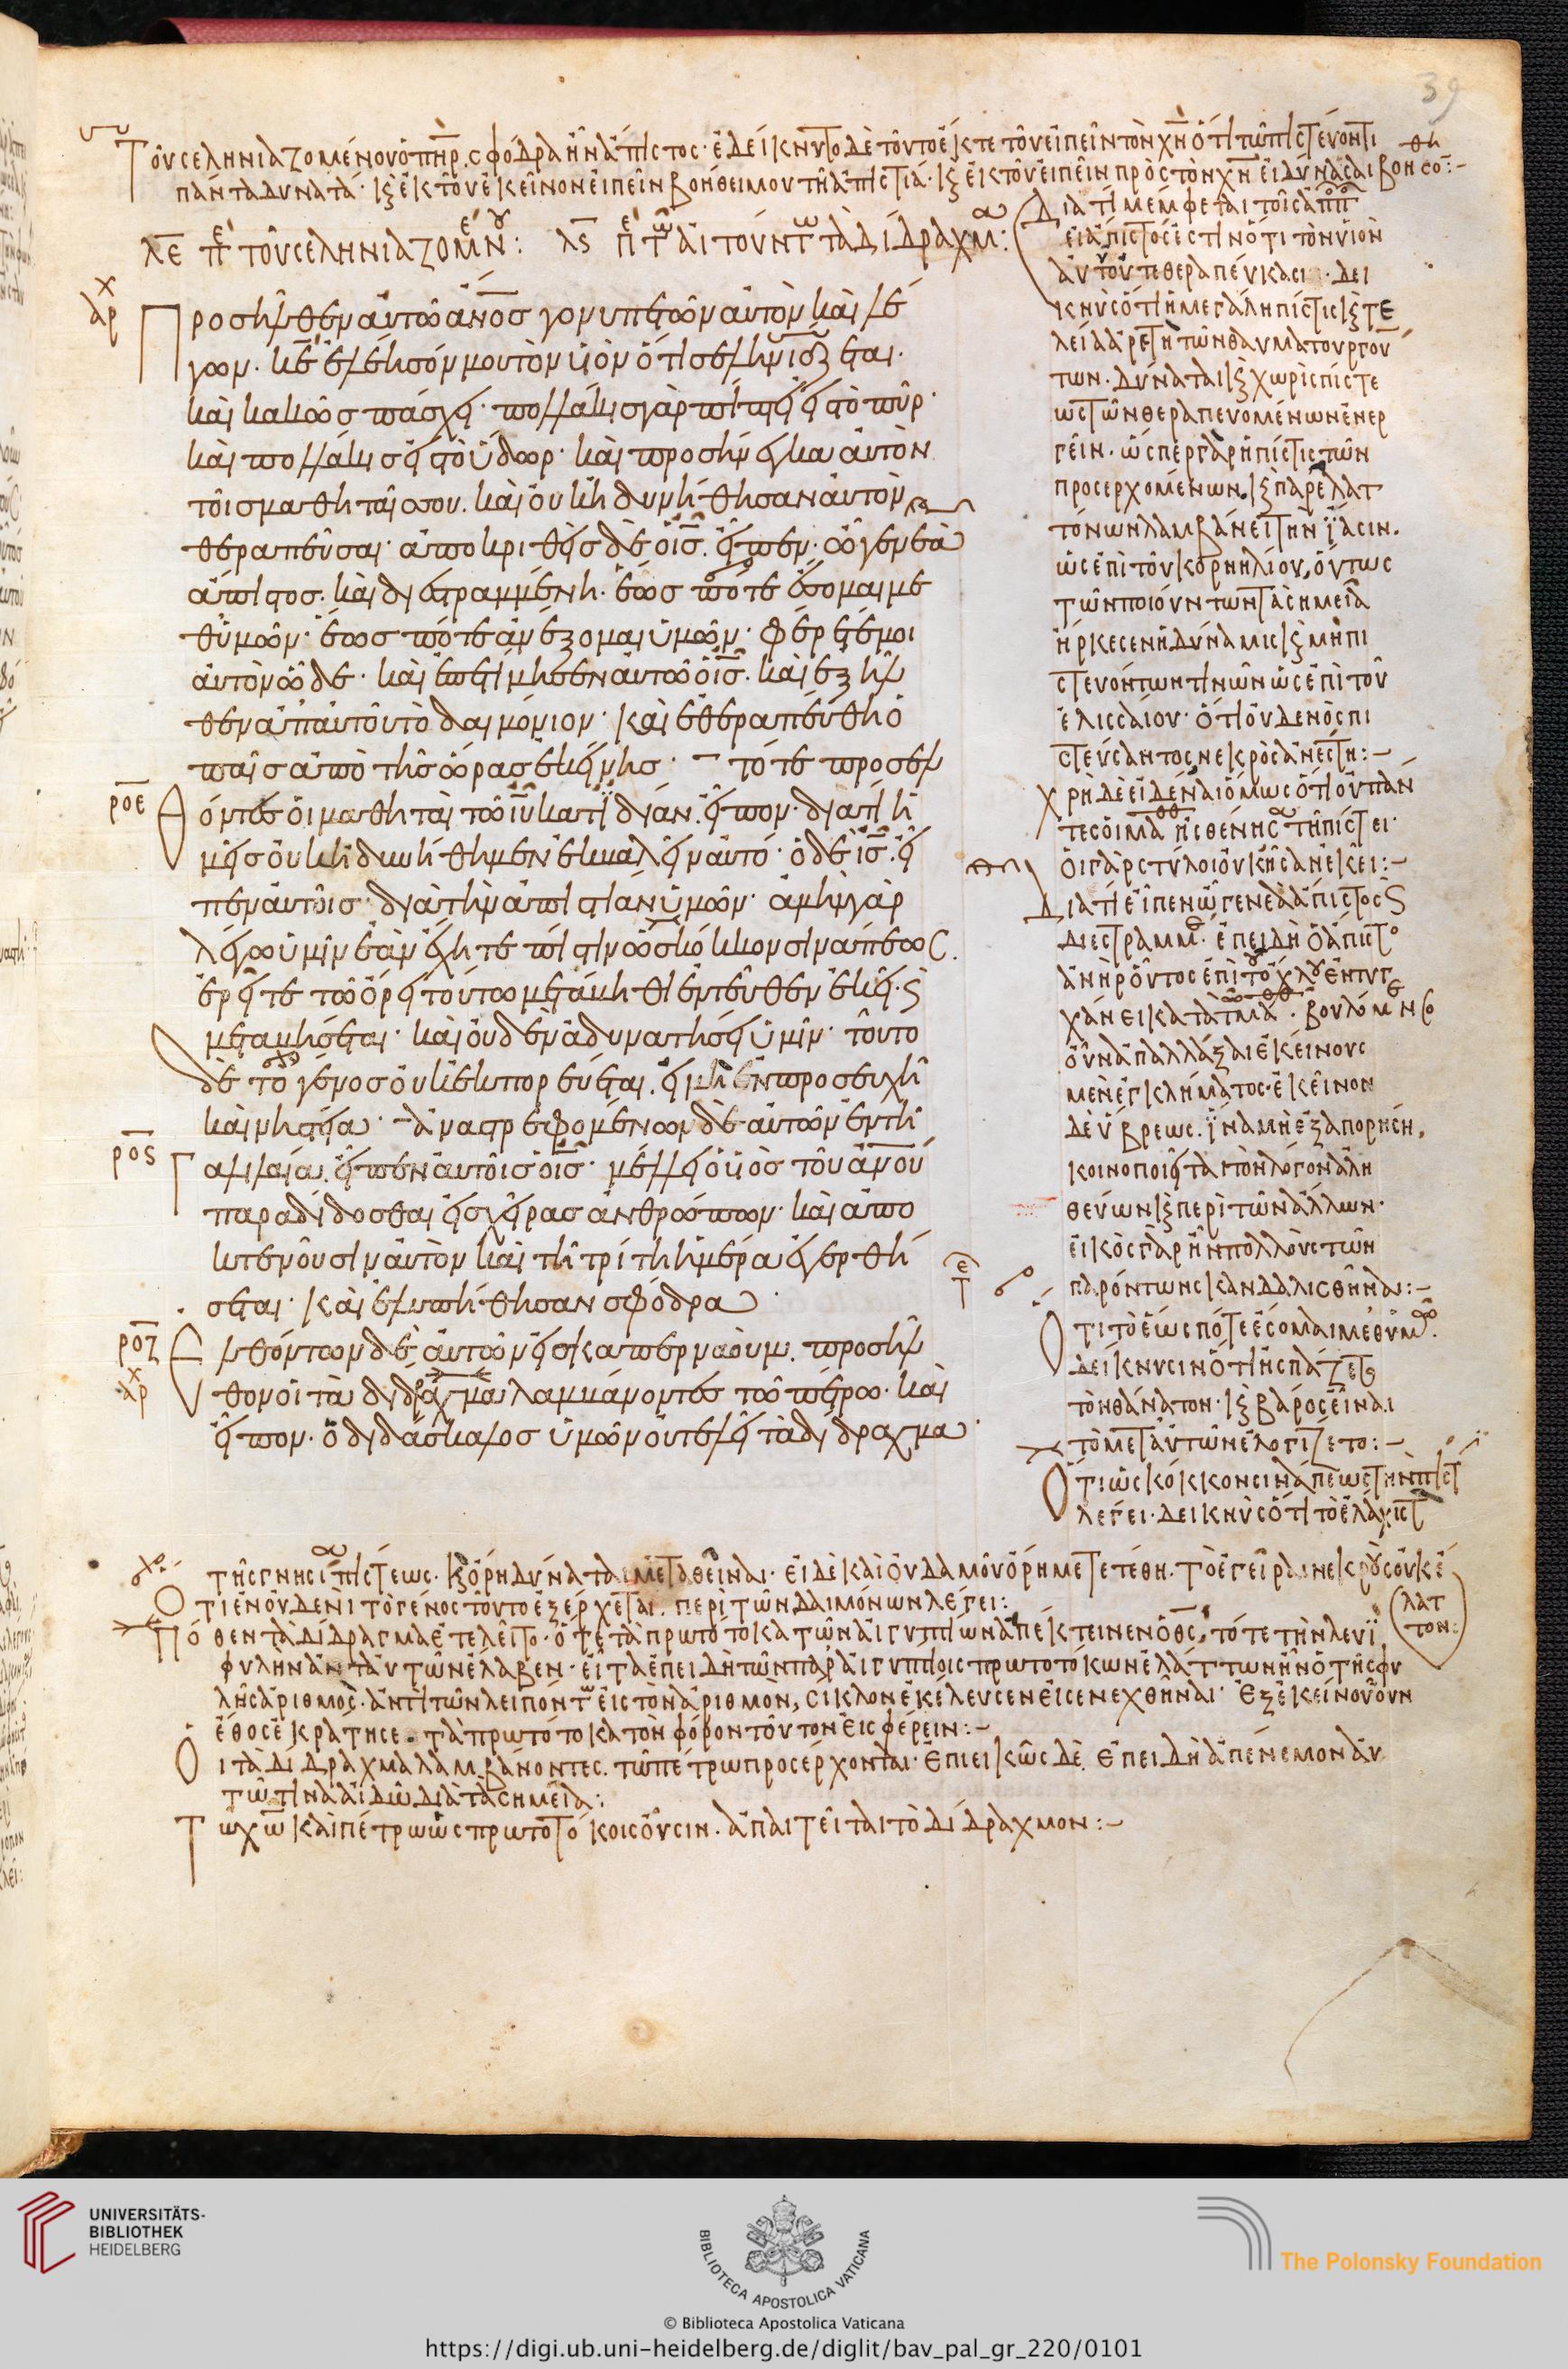 39
Τοῦ σεληνιαζομένου ὁ πη̅ρ. σφόδρα ἦν ἄπιστος· ἐδείκνυτο δὲ τοῦτο ἔκ τε τοῦ εἰπεῖν τὸν χν̅ ὅτι τῶ πιστεύοντι
πάντα δυνατά· κ̣ ἐκ τοῦ ἐκεῖνον εἰπεῖν βοήθει μου τῆ ἀπιστία· κ̣ ἐκ τοῦ εἰπεῖν πρὸς τὸν χν̅ εἰ δύνασαι βοηθησο:-
λε̅ πε τοῦ σεληνιαζομεν: λς̅ πε τω αἰτούντω τὰ δίδραχμα:
Προσῆλθεν αὐτῶ ἄν̅ο̅σ γονυπετῶν αὐτὸν καὶ λέ
γων. κε̅ ἐλέησόν μου τὸν ὑιὸν ὅτι σεληνιάζεται.
καὶ κακῶσ πάσχει· πολλάκισ γὰρ πίπτει εἰσ τὸ πῦρ·
καὶ πολλάκισ εἰσ τὸ ὕδωρ· καὶ προσήνεγκα αὐτὸν
τοῖσ μαθηταῖσ σου. καὶ οὐκ ἠδυνήθησαν αὐτὸν
θεραπεῦσαι· ἀποκριθεὶσ δὲ ὁ ισ̅. εἶπεν· ὦ γενεὰ
ἄπιστοσ. καὶ διεστραμμένη. ἕωσ πότε ἔσομαι με
θ' ὑμῶν· ἕωσ πότε ἀνέξομαι ὑμῶν· φέρετέ μοι
αὐτὸν ὧδε· καὶ ἐπετίμησεν αὐτῶ ὁ ισ̅. καὶ ἐξῆλ
θεν ἀπ' αὐτοῦ τὸ δαιμόνιον· καὶ ἐθεραπεύθη ὁ
παῖσ ἀπὸ τῆσ ὥρασ ἐκείνησ· τότε προσελ
ροε̅
θόντεσ ὁι μαθηταὶ τῶ ιυ̅ κατ' ἰδίαν. εἶπον· διατί ἡ
μεῖσ οὐκ ἠδυνήθημεν ἐκβαλεῖν αὐτό· ὁ δὲ ισ̅. εἶ
πεν αὐτοῖσ· διὰ τὴν ἀπιστίαν ὑμῶν· ἀμὴν γὰρ
λέγω ὑμῖν ἐὰν ἔχητε πίστιν ὡσ κόκκον σινάπεωσ.
ἐρεῖτε τῶ ὄρει τούτω μετάβηθι ἐντεῦθεν ἐκεῖ. ς
μεταβήσεται· καὶ οὐδὲν ἀδυνατήσει ὑμῖν· τοῦτο
δὲ τὸ γένοσ οὐκ ἐκπορεύεται. εἰ μὴ ἐν προσευχῆ
καὶ νηστεία· ἀναστρεφομένων δὲ αὐτῶν ἐν τῆ
ρος̅
γαλιλαία. εἶπεν αὐτοῖσ ὁ ισ̅· μέλλει ὁ ὑιὸσ τοῦ ἀν̅ο̅υ̅
παραδίδοσθαι εἰσ χεῖρασ ἀνθρώπων· καὶ ἀπο
κτενοῦσιν αὐτὸν καὶ τῆ τρίτη ἡμέρα ἐγερθή
σεται· καὶ ἐλυπήθησαν σφόδρα·
ροζ̅
Ελθόντων δὲ αὐτῶν εἰσ καπερναούμ. προσῆλ
θον ὁι τὰ δίδραχμα λαμβάνοντεσ τῶ πέτρω· καὶ
εἶπον· ὁ διδάσκαλοσ ὑμῶν οὐ τελεῖ τὰ δίδραχμα·
Διατί μέμφεται τοῖς ἀπ
εἰ ἄπιστος ἐστὶν ὅτι τὸν υἱὸν
αὐτοῦ τεθεραπεύκασι· δει
κνὺς ὅτι ἡ μεγάλη πίστις κ̣ τε
λεία ἀρετὴ τῶν θαυματουργού
των. δύναται κ̣ χωρὶς πίστε
ως τῶν θεραπευομένων ἐνερ
γεῖν. ὥσπερ γὰρ ἡ πίστις τῶν
προσερχομένων. κ̣ παρ' ἐλατ
τόνων λαμβάνει τὴν ἴασιν.
ὡς ἐπὶ τοῦ κορνηλίου, οὕτως
τῶν ποιούντων τὰ σημεῖα
ἤρκεσεν ἡ δύναμις κ̣ μὴ πι
στευόντων τινῶν ὡς ἐπὶ τοῦ
ἐλισσαίου· ὅτι οὐδενὸς πι
στεύσαντος νεκρὸς ἀνέστη:-
Χρὴ δὲ εἰδέναι ὅμως ὅτι οὐ πάν
τες οἱ μαθ ἠσθένησ τῆ πίστει·
οἱ γὰρ στύλοι οὐκ ἦσαν ἐκεῖ:-
Διατί εἶπεν ὦ γενεὰ ἄπιστος ς
διεστραμμ. ἐπειδὴ ὁ ἄπιστο
ἀνὴρ οὗτος ἐπὶ τοῦ ὄχλου ἐντυγ
χάνει κατὰ τ μαθ. βουλομεν
οὖν ἀπαλλάξαι ἐκείνους
μὲν ἐγκλήματος· ἐκεῖνον
δὲ ὕβρεως. ἵνα μὴ ἐξαπορηση,
κοινοποιεῖται τὸν λόγον ἀλη
θεύων κ̣ περὶ τῶν ἄλλων·
εἰκὸς γὰρ ἦν πολλοὺς τῶν
παρόντων σκανδαλισθῆναι:-
Ὅτι τὸ ἕως πότε ἔσομαι μεθ' ὑμ.
δείκνυσιν ὅτι ἠσπάζετο
τὸν θάνατον· κ̣ βάρος εἶναι
τὸ μετ' αὐτῶν ἐλογίζετο:-
Ὅτι ὡς κόκκον σινάπεως τὴν πιστ
λέγει. δεικνὺς ὅτι τὸ ἐλάχιστ
τῆς γνησι πίστεως. κ̣ ὄρη δύναται μεταθεῖναι· εἰ δὲ καὶ οὐδαμοῦ ὄρη μετετέθη. τὸ ἐγεῖραι νεκροὺς οὐκ ἔ
λαττον:
Ὅτι ἐν οὐδενὶ τὸ γένος τοῦτο ἐξέρχεται. περὶ τῶν δαιμόνων λέγει:
Πόθεν τὰ δίδραγμα ἐτελεῖτο· ὅτε τὰ πρωτότοκα τῶν αἰγυπτίων ἀπέκτεινεν ὁ θς̅, τότε τὴν λευϊ
φυλὴν ἀντ' αὐτῶν ἔλαβεν· εἶτα ἐπειδὴ τῶν παρ' αἰγυπτίοις πρωτοτόκων ἐλάττων ἦν ὁ τῆς φυ
λῆς ἀριθμὸς. ἀντὶ τῶν λειπόντ εἰς τὸν ἀριθμὸν, σίκλον ἐκέλευσεν εἰσενεχθῆναι· ἐξ ἐκείνου οὖν
ἔθος ἐκράτησε. τὰ πρωτότοκα τὸν φόρον τοῦτον εἰσφέρειν:-
Οἱ τὰ δίδραχμα λαμβάνοντες. τῶ πέτρω προσέρχονται· ἐπιεικῶς δὲ ἐπειδὴ ἀπένεμον αὐ
τῶ τινὰ αἰδῶ διὰ τὰ σημεῖα:
Τῶ χω̅ καὶ πέτρω ὡς πρωτοτόκοις οὖσιν. ἀπαιτεῖται τὸ δίδραχμον:-
UNIVERSITÄTS-
BIBLIOTHEK
HEIDELBERG
BIBLIOTECA APOSTOLICA VATICANA
The Polonsky Foundation
© Biblioteca Apostolica Vaticana
https://digi.ub.uni-heidelberg.de/diglit/bav_pal_gr_220/0101